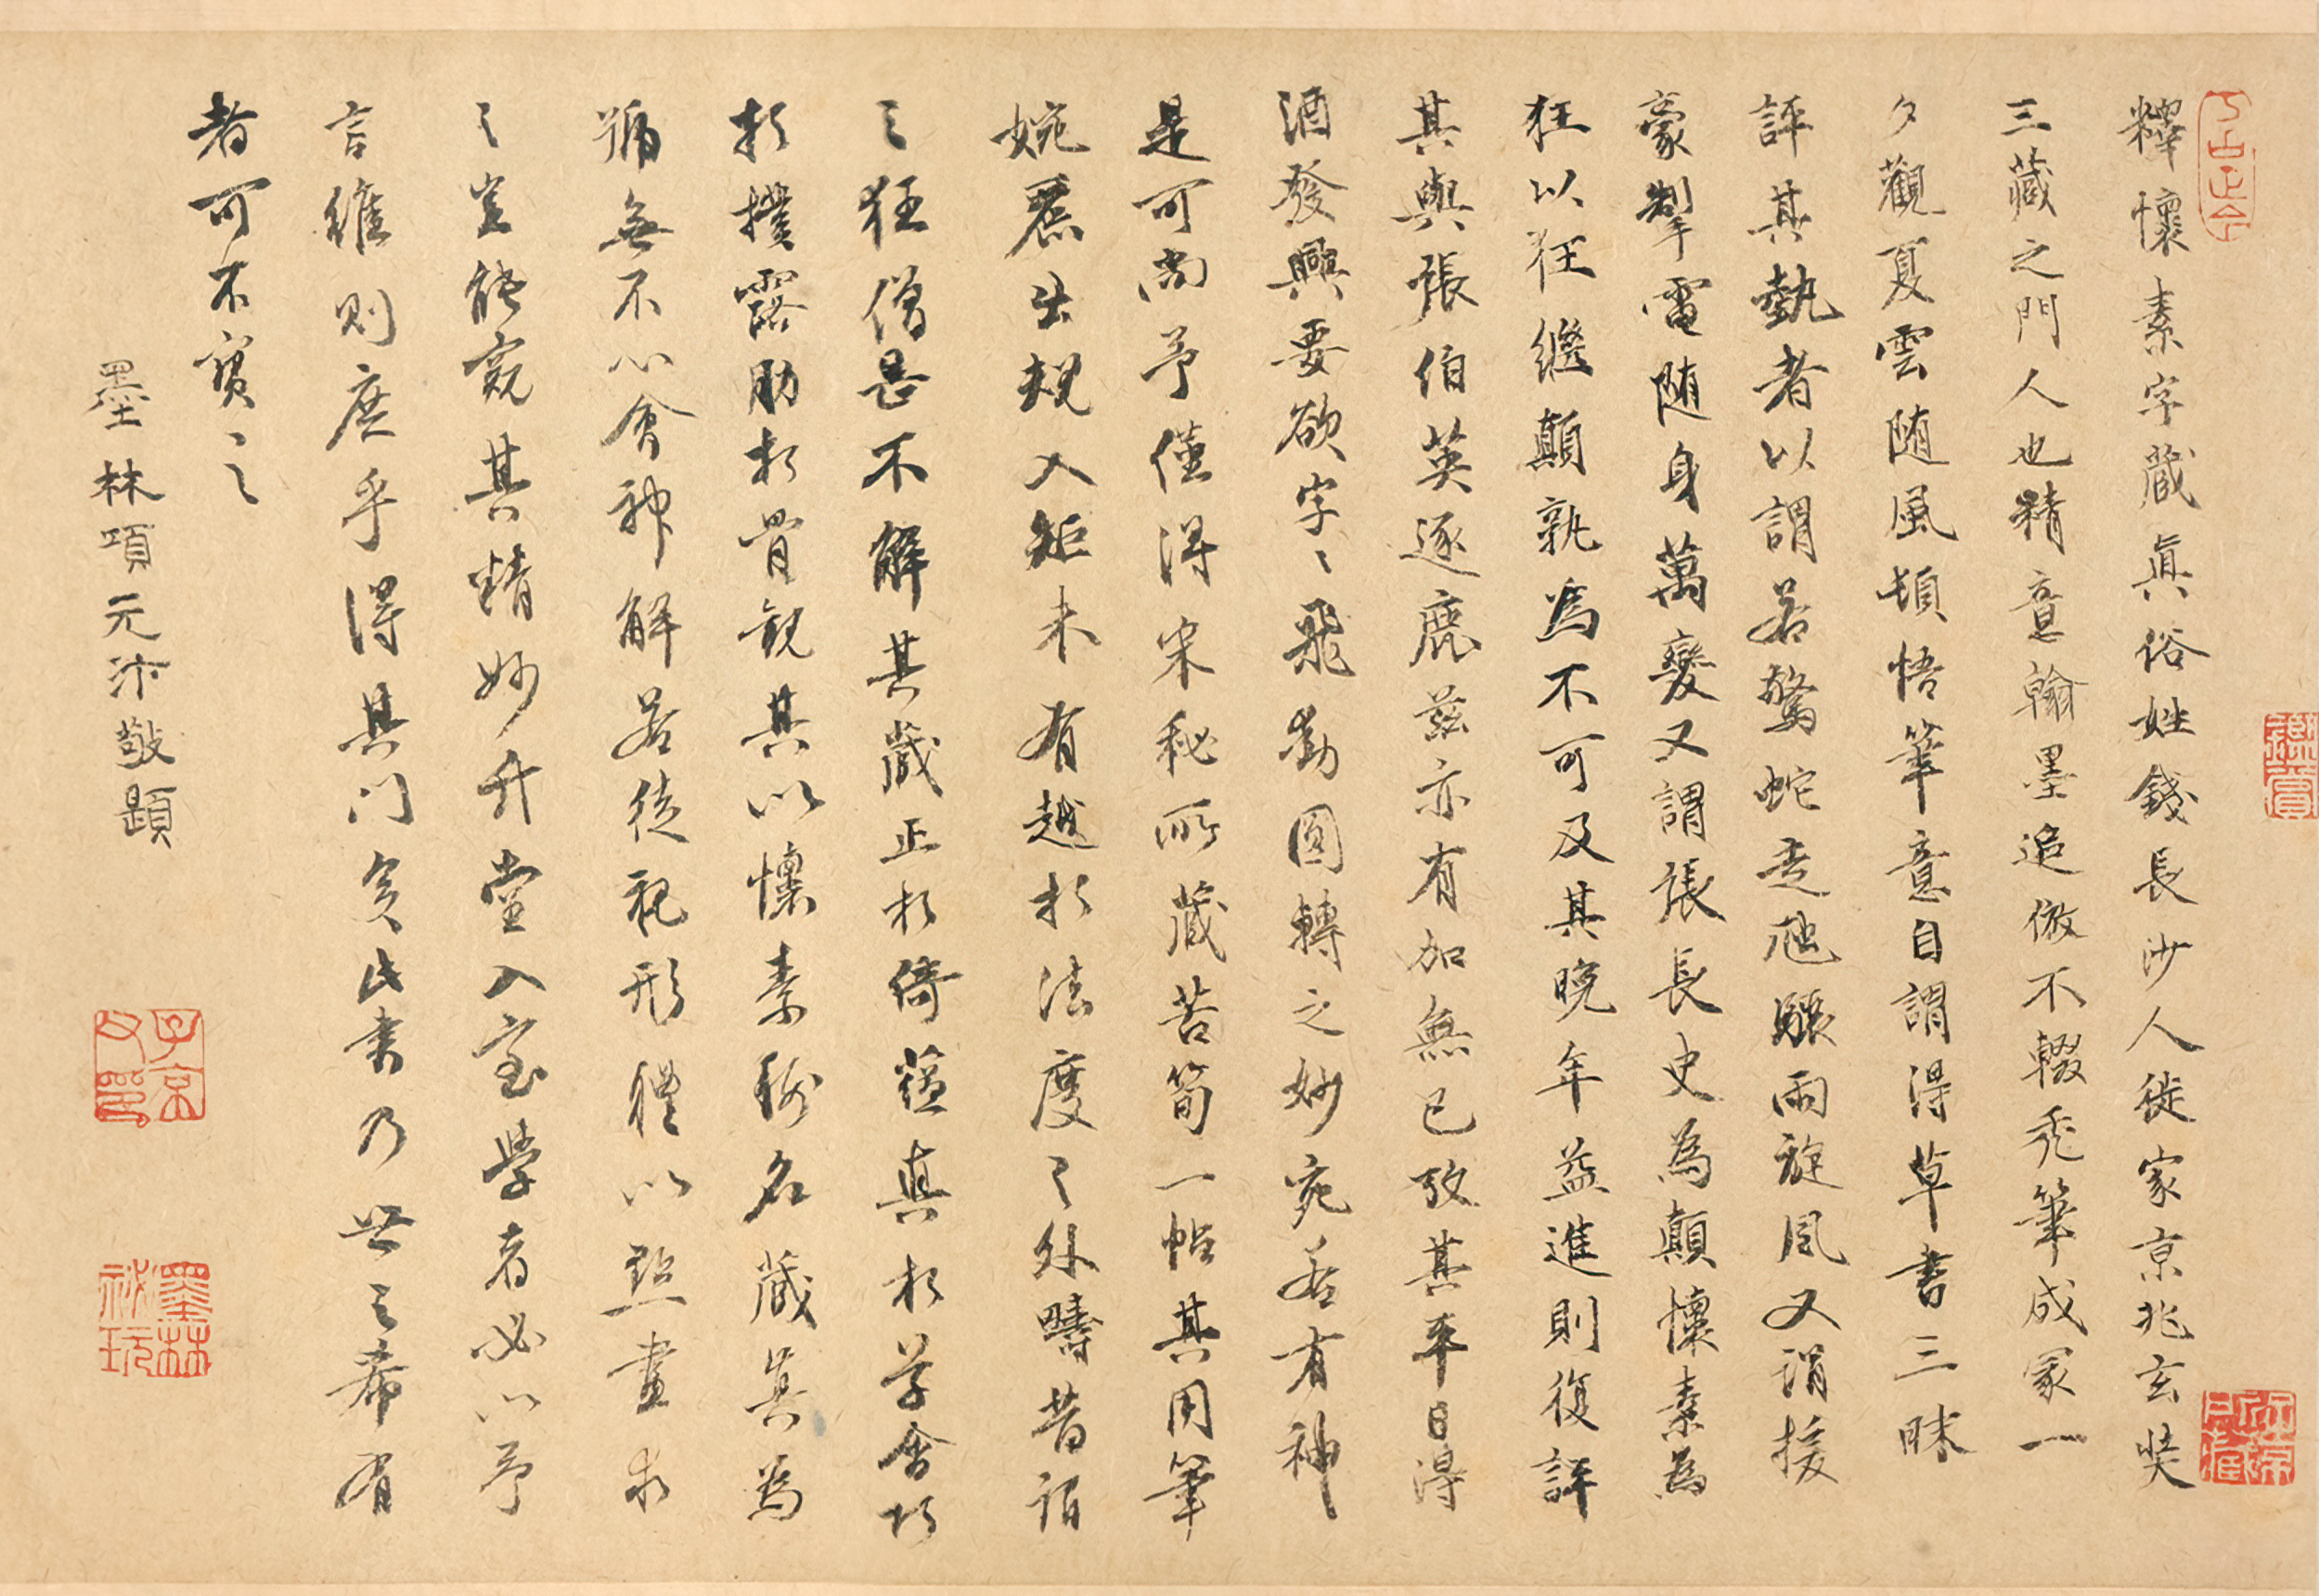 釋懷素字藏真俗姓錢長沙人徙家京兆玄奘
三藏之門人也精意翰墨追倣不輟禿筆成冢一
夕觀夏雲随風頓悟筆意自謂得草書三昧
評其勢者以謂若驚蛇走虺驟雨旋風又謂援
豪掣電随身萬變又謂張長史為顛懷素為
狂以狂繼顛孰為不可及其晚年益進則復評
其與張伯英逐鹿茲亦有加無已故其平日得
酒發興要欲字〻飛動圓轉之妙宛若有神
是可尚予僅得宋秘所藏苦筍一帖其用筆
婉麗出規入矩未有越於法度〻外疇昔謂
〻狂僧甚不解其藏正於倚蘊真於草會巧
於撲露肋於骨觀其以懷素稱名藏真為
號無不心會神解若徒視形體以點畫求
〻豈能窺其精妙升堂入室學者必以予
言維則庶乎得其門矣此書乃世之希有
者可不寶〻之
墨林項元汴敬題
子京父印
墨林祕玩